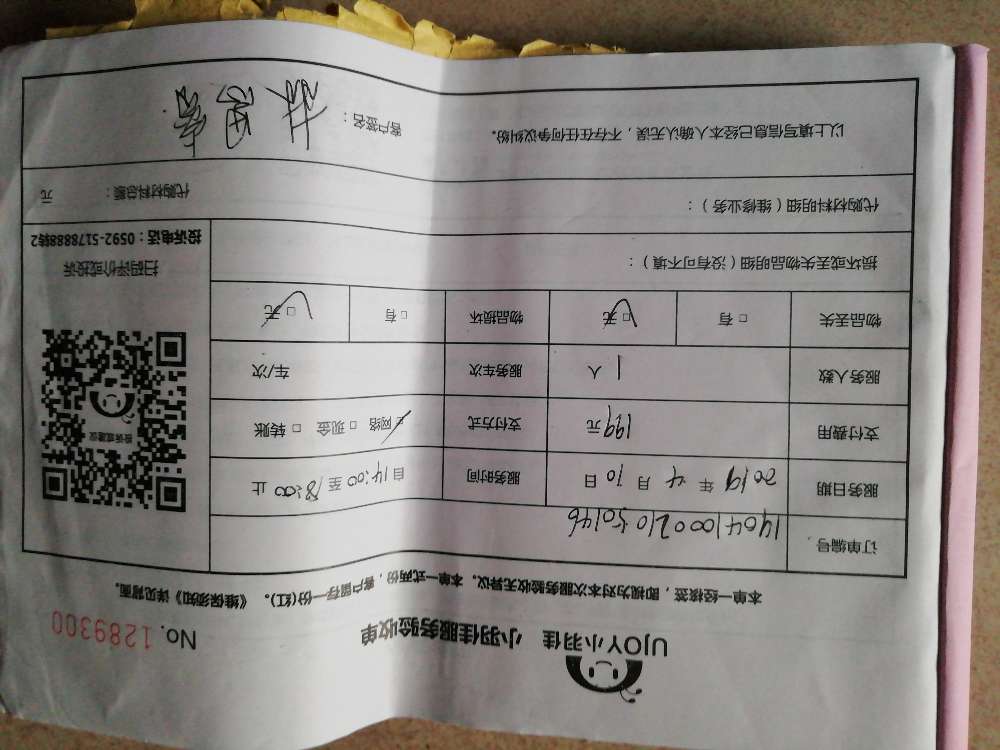 UJOY小羽佳 小羽佳服务验收单
No. 1289300
本单一经核签,即视为对本次服务验收无异议。本单一式两份,客户留存一份(红)。《维保须知》详见背面。
订单编号: 1904100021050146
服务日期 2019年4月10日 服务时间 自14:00至18:00止
支付费用 199元 支付方式 网络 □现金 □转账
服务人数 1人 服务车次 车/次
物品丢失 □有 □无 物品损坏 □有 □无
损坏或丢失物品明细(没有可不填):
投诉或建议
扫码评价或投诉
投诉电话:0592-5178888转2
代购材料明细(维修业务): 代购材料总额: 元
以上填写信息已经本人确认无误,不存在任何争议纠纷。 客户签名: